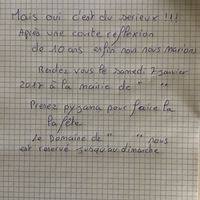 Mais oui c'est du serieux !!!
Après une courte reflexion
de 10 ans enfin nous nous marions
Rendez vous le samedi 7 janvier
2017 à la mairie de " "
Prenez pyjama pour faire la
la fête
le Domaine de " " nous
est reservé jusqu'au dimanche